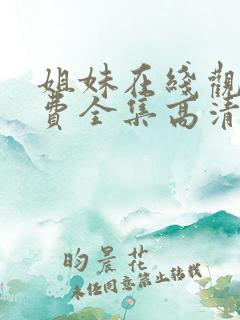 姐妹在线觀
費全集高清
昀晨花
未经同意禁止转载